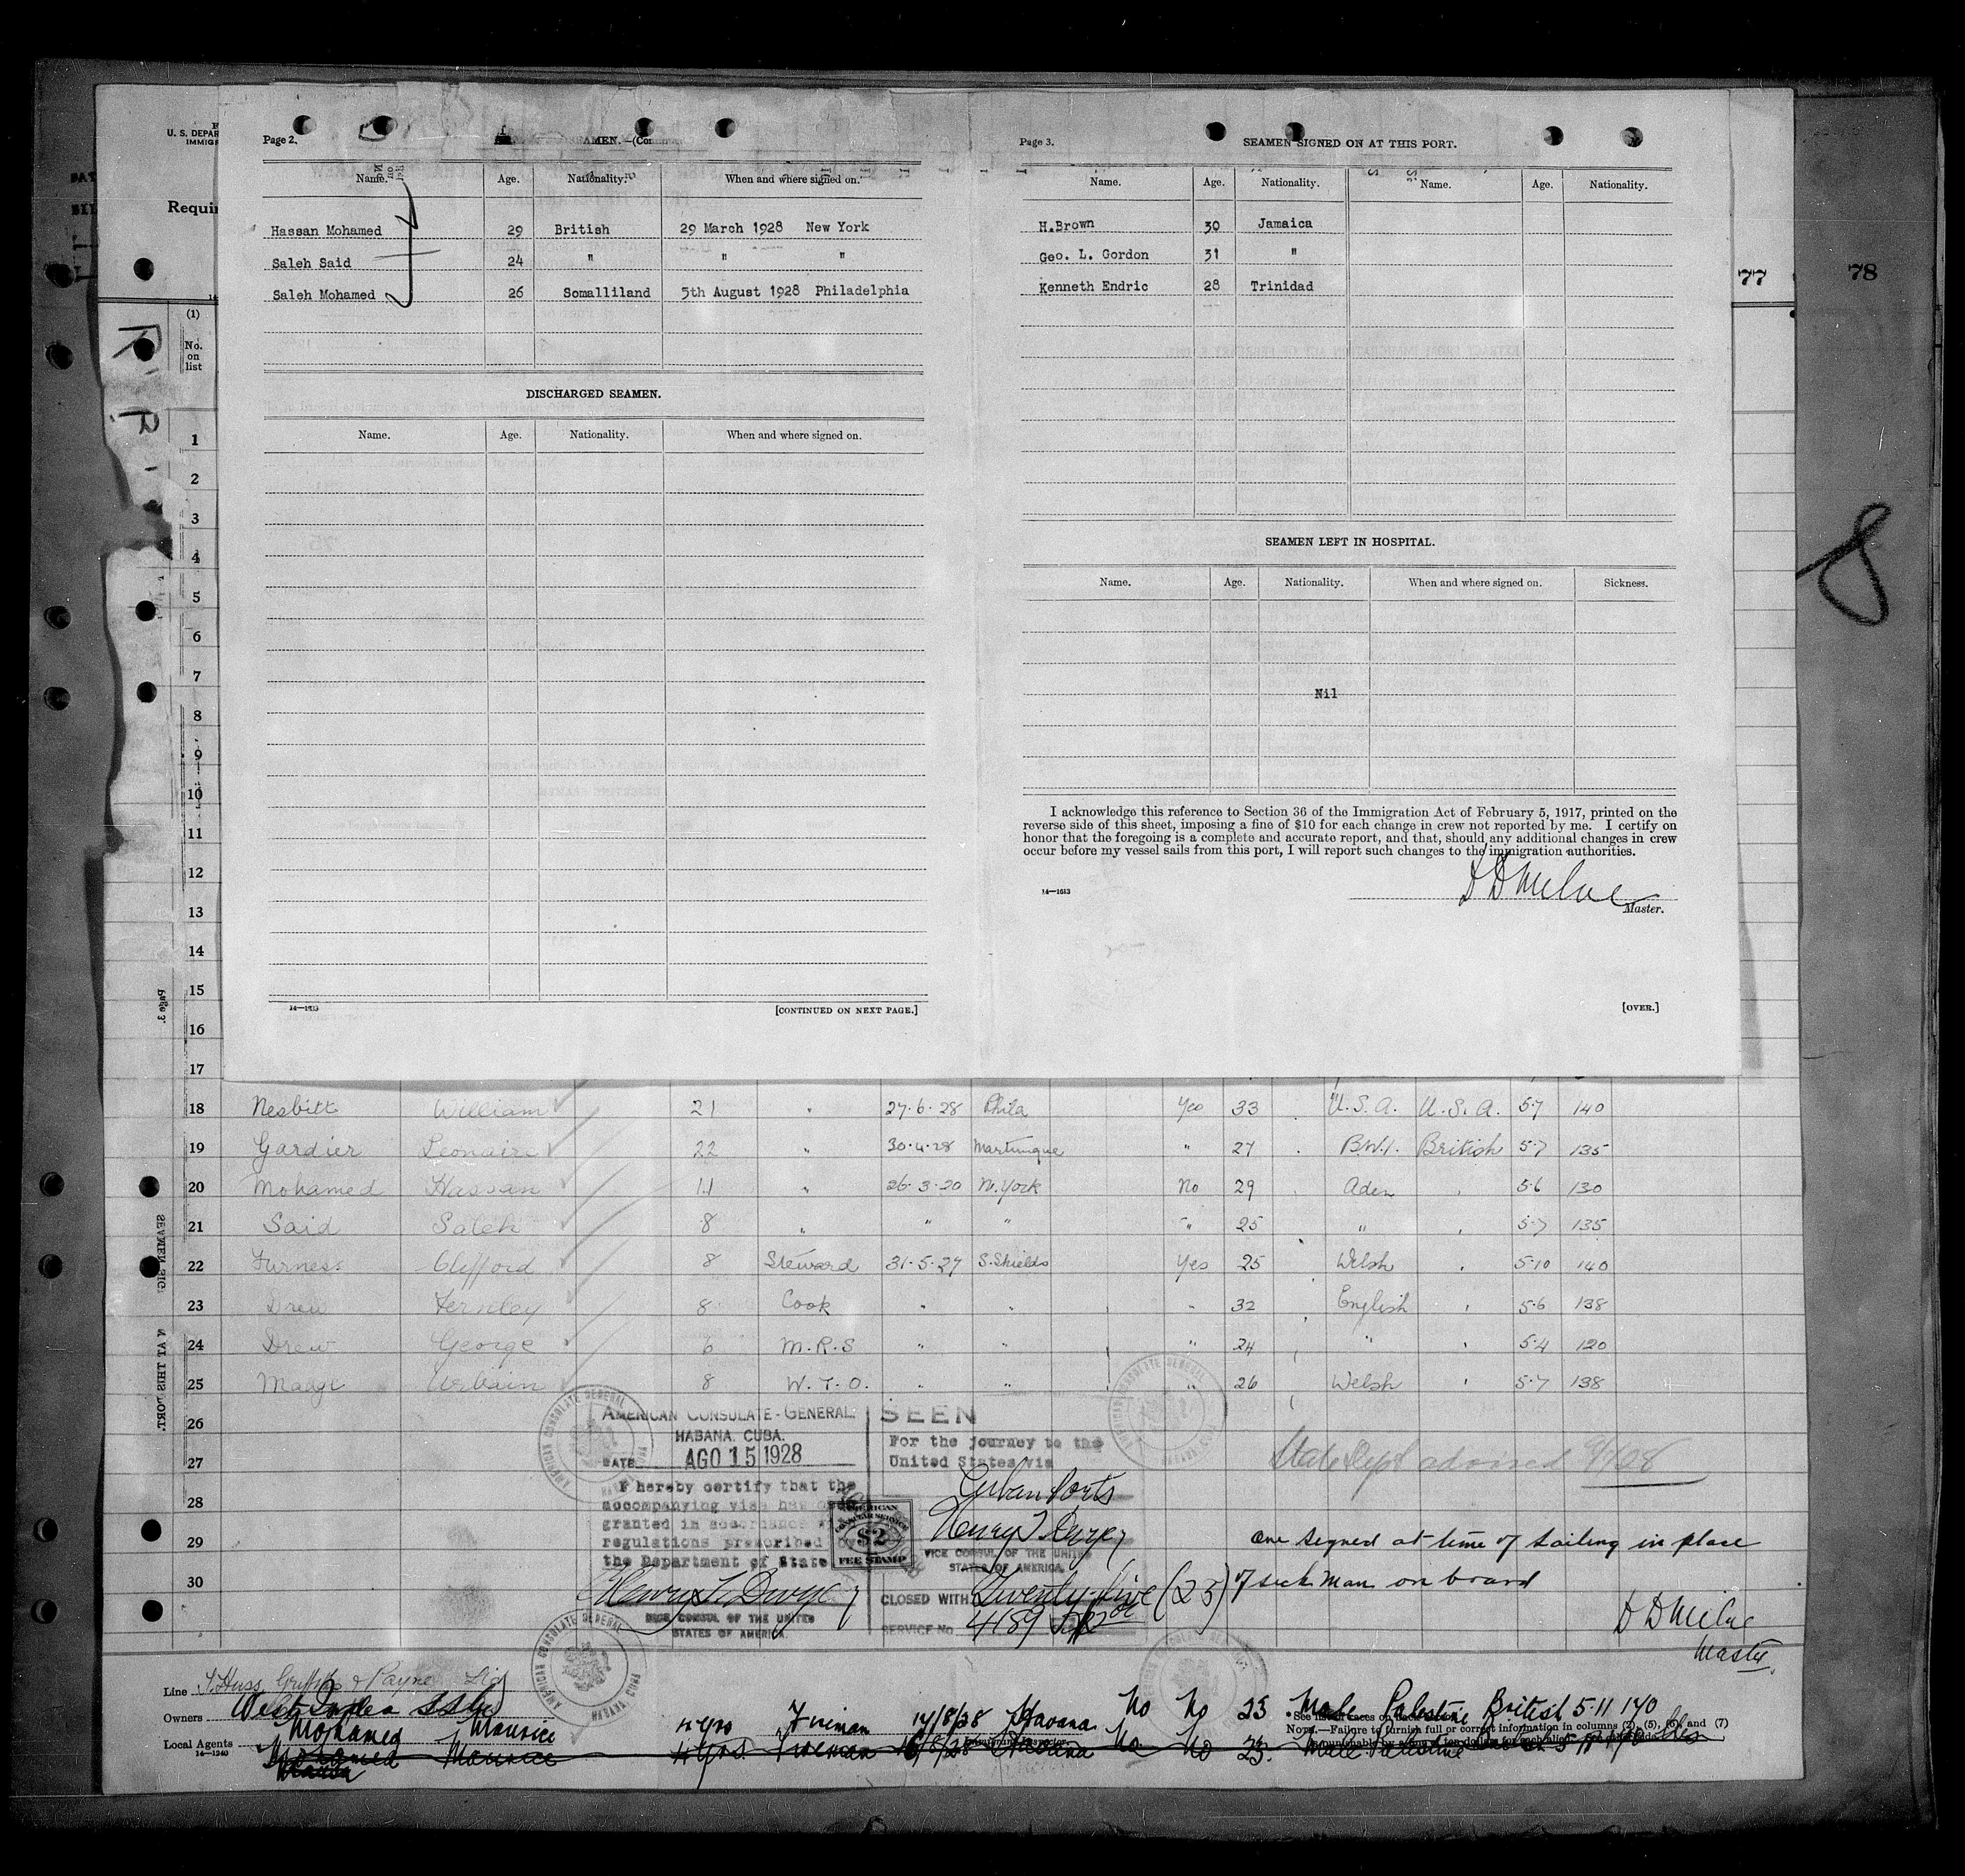 U. S. DEPAR
IMMIG
Requir
Page 2.
SEAMEN.—(Con
Name. Age. Nationality. When and where signed on.
Hassan Mohamed 29 British 29 March 1928 New York
Saleh Said 24 " " "
Saleh Mohamed 26 Somalliland 5th August 1928 Philadelphia
DISCHARGED SEAMEN.
Name. Age. Nationality. When and where signed on.
14—1613
[CONTINUED ON NEXT PAGE.]
Page 3.
SEAMEN SIGNED ON AT THIS PORT.
Name. Age. Nationality. Name. Age. Nationality.
H.Brown 30 Jamaica
Geo. L. Gordon 31 "
Kenneth Endric 28 Trinidad
SEAMEN LEFT IN HOSPITAL.
Name. Age. Nationality. When and where signed on. Sickness.
Nil
I acknowledge this reference to Section 36 of the Immigration Act of February 5, 1917, printed on the
reverse side of this sheet, imposing a fine of $10 for each change in crew not reported by me. I certify on
honor that the foregoing is a complete and accurate report, and that, should any additional changes in crew
occur before my vessel sails from this port, I will report such changes to the immigration authorities.
D D Milne
14—1613
Master.
[OVER.]
77
78
8
(1)
No.
on
list
1
2
3
4
5
6
7
8
9
10
11
12
13
14
15
16
17
18 Nesbitt William 21 " 27·6·28 Phila Yes 33 U.S.A. U.S.A. 5·7 140
19 Gardier Leonaire 22 " 30·4·28 Martinique " 27 B.W.I. British 5·7 135
20 Mohamed Hassan 11 " 26·3·20 N.York No 29 Aden " 5·6 130
21 Said Saleh 8 " " " " 25 " " 5·7 135
22 Furness Clifford 8 Steward 31·5·27 S.Shields Yes 25 Welsh " 5·10 140
23 Drew Fernley 8 Cook " " " 32 English " 5·6 138
24 Drew George 6 M.R.S " " " 24 " " 5·4 120
25 Madge Urbain 8 W.T.O. " " " 26 Welsh " 5·7 138
26
27
28
29
30
AMERICAN CONSULATE-GENERAL
HABANA, CUBA.
DATE AGO 15 1928
I hereby certify that the
accompanying visa has been
granted in accordance
regulations prescribed by
the Department of State
Henry T. Dwyer
VICE CONSUL OF THE UNITED
STATES OF AMERICA.
AMERICAN
CONSULAR SERVICE
$2
FEE STAMP
SEEN
For the journey to the
United States via
Cuban Ports
Henry T. Dwyer
VICE CONSUL OF THE UNITED
STATES OF AMERICA
CLOSED WITH Twenty-five (25)
SERVICE No. 4189
State Dept advised
one signed at time of sailing in place
of sick man on board
D D Milne
Master.
Line
Owners West India S S Co
Local Agents
14—1240
Mohamed Maurice 4 yrs Fireman 14/8/28 Havana No No 23 Male Palestine British 5·11 170
Mohamed Maurice 4 yrs Fireman Havana No No 23. Male Palestine
See list of races on back
NOTE.—Failure to furnish full or correct information in columns (2), (5), (6), and (7)
Page 3.
SEAMEN SIG
N AT THIS PORT.